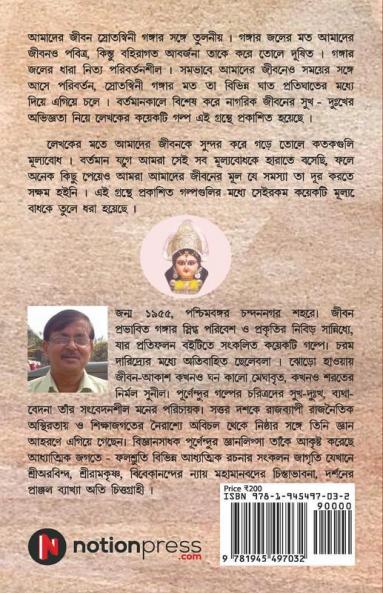 আমাদের জীবন স্রোতস্বিনী গঙ্গার সঙ্গে তুলনীয় । গঙ্গার জলের মত আমাদের
জীবনও পবিত্র, কিন্তু বহিরাগত আবর্জনা তাকে করে তোলে দূষিত । গঙ্গার
জলের ধারা নিত্য পরিবর্তনশীল । সমভাবে আমাদের জীবনেও সময়ের সঙ্গে
আসে পরিবর্তন, স্রোতস্বিনী গঙ্গার মত তা বিভিন্ন ঘাত প্রতিঘাতের মধ্যে
দিয়ে এগিয়ে চলে । বর্তমানকালে বিশেষ করে নাগরিক জীবনের সুখ - দুঃখের
অভিজ্ঞতা নিয়ে লেখকের কয়েকটি গল্প এই গ্রন্থে প্রকাশিত হয়েছে ।
লেখকের মতে আমাদের জীবনকে সুন্দর করে গড়ে তোলে কতকগুলি
মূল্যবোধ । বর্তমান যুগে আমরা সেই সব মূল্যবোধকে হারাতে বসেছি, ফলে
অনেক কিছু পেয়েও আমরা আমাদের জীবনের মূল যে সমস্যা তা দূর করতে
সক্ষম হইনি । এই গ্রন্থে প্রকাশিত গল্পগুলির মধ্যে সেইরকম কয়েকটি মূল্য
বোধকে তুলে ধরা হয়েছে ।
জন্ম ১৯৫৫, পশ্চিমবঙ্গর চন্দননগর শহরে। জীবন
প্রভাবিত গঙ্গার স্নিগ্ধ পরিবেশ ও প্রকৃতির নিবিড় সান্নিধ্যে,
যার প্রতিফলন বইটিতে সংকলিত কয়েকটি গল্পে। চরম
দারিদ্র্যের মধ্যে অতিবাহিত ছেলেবেলা । ঝোড়ো হাওয়ায়
জীবন-আকাশ কখনও ঘন কালো মেঘাবৃত, কখনও শরতের
নির্মল সুনীল। পূর্ণেন্দুর গল্পের চরিত্রদের সুখ-দুঃখ, ব্যথা-
বেদনা তাঁর সংবেদনশীল মনের পরিচায়ক। সত্তর দশকে রাজ্যব্যাপী রাজনৈতিক
অস্থিরতায় ও শিক্ষাজগতের নৈরাশ্যে অবিচল থেকে নিষ্ঠার সঙ্গে তিনি জ্ঞান
আহরণে এগিয়ে গেছেন। বিজ্ঞানসাধক পূর্ণেন্দুর জ্ঞানলিপ্সা তাঁকে আকৃষ্ট করেছে
আধ্যাত্মিক জগতে - ফলশ্রুতি বিভিন্ন আধ্যাত্মিক রচনার সংকলন জাগৃতি যেখানে
শ্রীঅরবিন্দ, শ্রীরামকৃষ্ণ, বিবেকানন্দের ন্যায় মহামানবদের চিন্তাভাবনা, দর্শনের
প্রাঞ্জল ব্যাখ্যা অতি চিত্তগ্রাহী ।
Price ₹200
ISBN 978-1-945497-03-2
90000
9 781945 497032
notionpress
.com